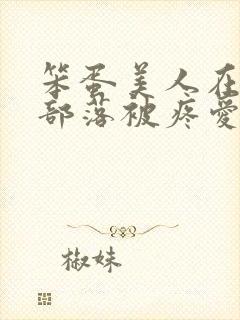 笨蛋美人在
部落被疼爱
椒妹